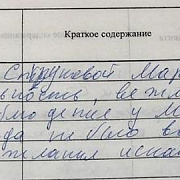 Краткое содержание
Струковой Мар
ность, веж
блюдение у М
да не было в
желания иска